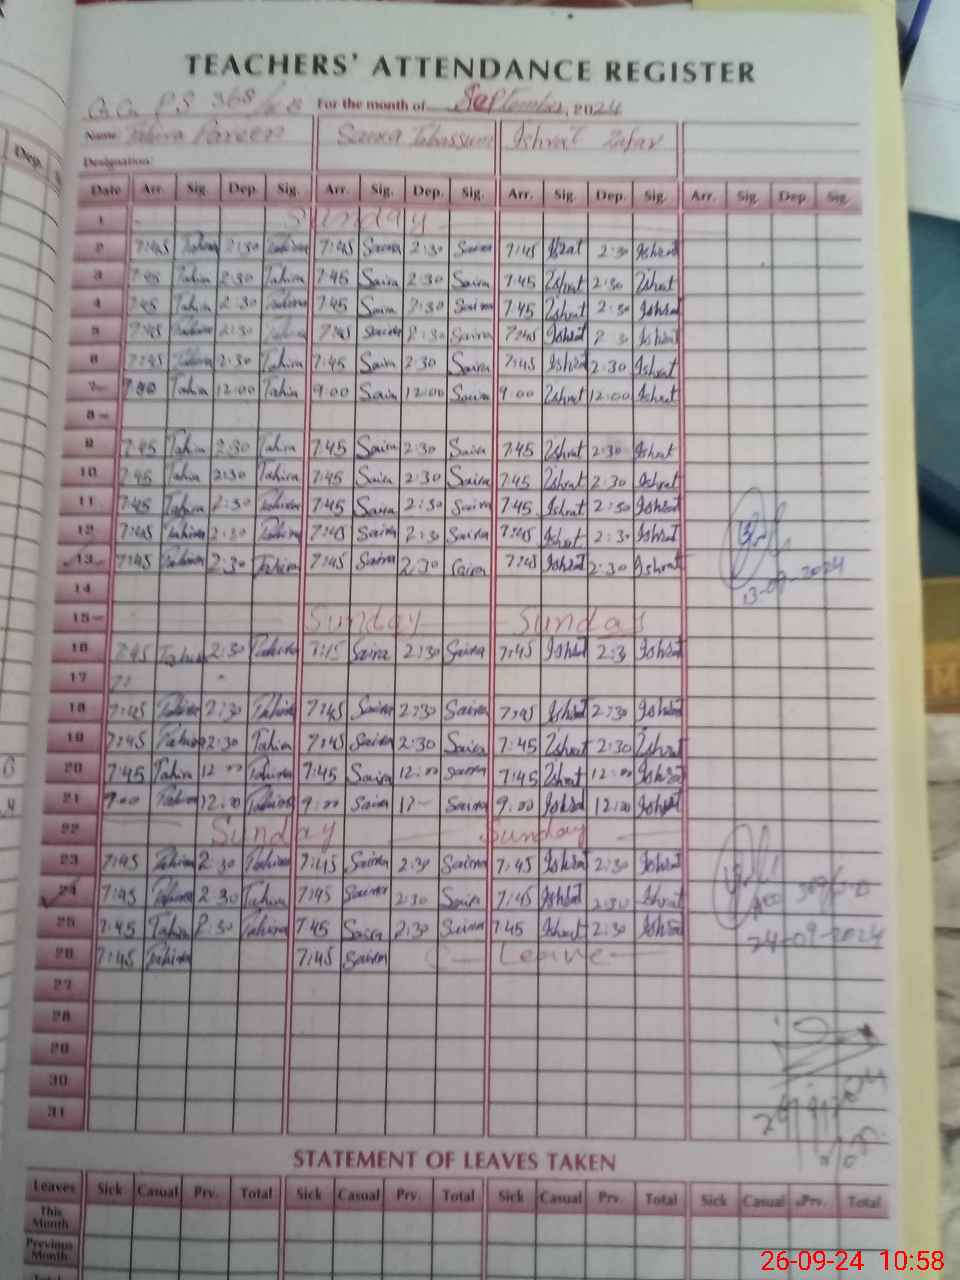 TEACHERS' ATTENDANCE REGISTER
P.S 368 For the month of September, 2024
Name Tahira Parveen Saira Tabassum Ishrat Zafar
Designation:
Dep.
Date Arr. Sig. Dep. Sig. Arr. Sig. Dep. Sig. Arr. Sig. Dep. Sig. Arr. Sig. Dep. Sig.
1 Sunday
2 7:45 Tahira 2:30 Tahira 7:45 Saira 2:30 Saira 7:45 Ishrat 2:30 Ishrat
3 7:45 Tahira 2:30 Tahira 7:45 Saira 2:30 Saira 7:45 Ishrat 2:30 Ishrat
4 7:45 Tahira 2:30 Tahira 7:45 Saira 2:30 Saira 7:45 Ishrat 2:30 Ishrat
5 7:45 Tahira 2:30 Tahira 7:45 Saira 2:30 Saira 7:45 Ishrat 2:30 Ishrat
6 7:45 Tahira 2:30 Tahira 7:45 Saira 2:30 Saira 7:45 Ishrat 2:30 Ishrat
7 Tahira 12:00 Tahira 9:00 Saira 12:00 Saira 9:00 Ishrat 12:00 Ishrat
8
9 7:45 Tahira 2:30 Tahira 7:45 Saira 2:30 Saira 7:45 Ishrat 2:30 Ishrat
10 7:45 Tahira 2:30 Tahira 7:45 Saira 2:30 Saira 7:45 Ishrat 2:30 Ishrat
11 7:45 Tahira 2:30 Tahira 7:45 Saira 2:30 Saira 7:45 Ishrat 2:30 Ishrat
12 7:45 Tahira 2:30 Tahira 7:45 Saira 2:30 Saira 7:45 Ishrat 2:30 Ishrat
13 7:45 Tahira 2:30 Tahira 7:45 Saira 2:30 Saira 7:45 Ishrat 2:30 Ishrat
13-09-2024
14
15 Sunday Sunday
16 7:45 Tahira 2:30 Tahira 7:15 Saira 2:30 Saira 7:45 Ishrat 2:3 Ishrat
17 7:
18 7:45 Tahira 2:30 Tahira 7:45 Saira 2:30 Saira 7:45 Ishrat 2:30 Ishrat
19 7:45 Tahira 2:30 Tahira 7:45 Saira 2:30 Saira 7:45 Ishrat 2:30 Ishrat
20 7:45 Tahira 12:00 Tahira 7:45 Saira 12:00 Saira 7:45 Ishrat 12:00 Ishrat
21 9:00 Tahira 12:00 Tahira 9:00 Saira 12- Saira 9:00 Ishrat 12:00 Ishrat
22 Sunday Sunday
23 7:45 Tahira 2:30 Tahira 7:45 Saira 2:30 Saira 7:45 Ishrat 2:30 Ishrat
24 7:45 Tahira 2:30 Tahira 7:45 Saira 2:30 Saira 7:45 Ishrat 2:30 Ishrat
25 7:45 Tahira 2:30 Tahira 7:45 Saira 2:30 Saira 7:45 Ishrat 2:30 Ishrat
24-09-2024
26 7:45 Tahira 7:45 Saira Leave
27
28
29
30
31
STATEMENT OF LEAVES TAKEN
Leaves Sick Casual Prv. Total Sick Casual Prv. Total Sick Casual Prv. Total Sick Casual Prv. Total
This Month
Previous Month
Total
26-09-24 10:58